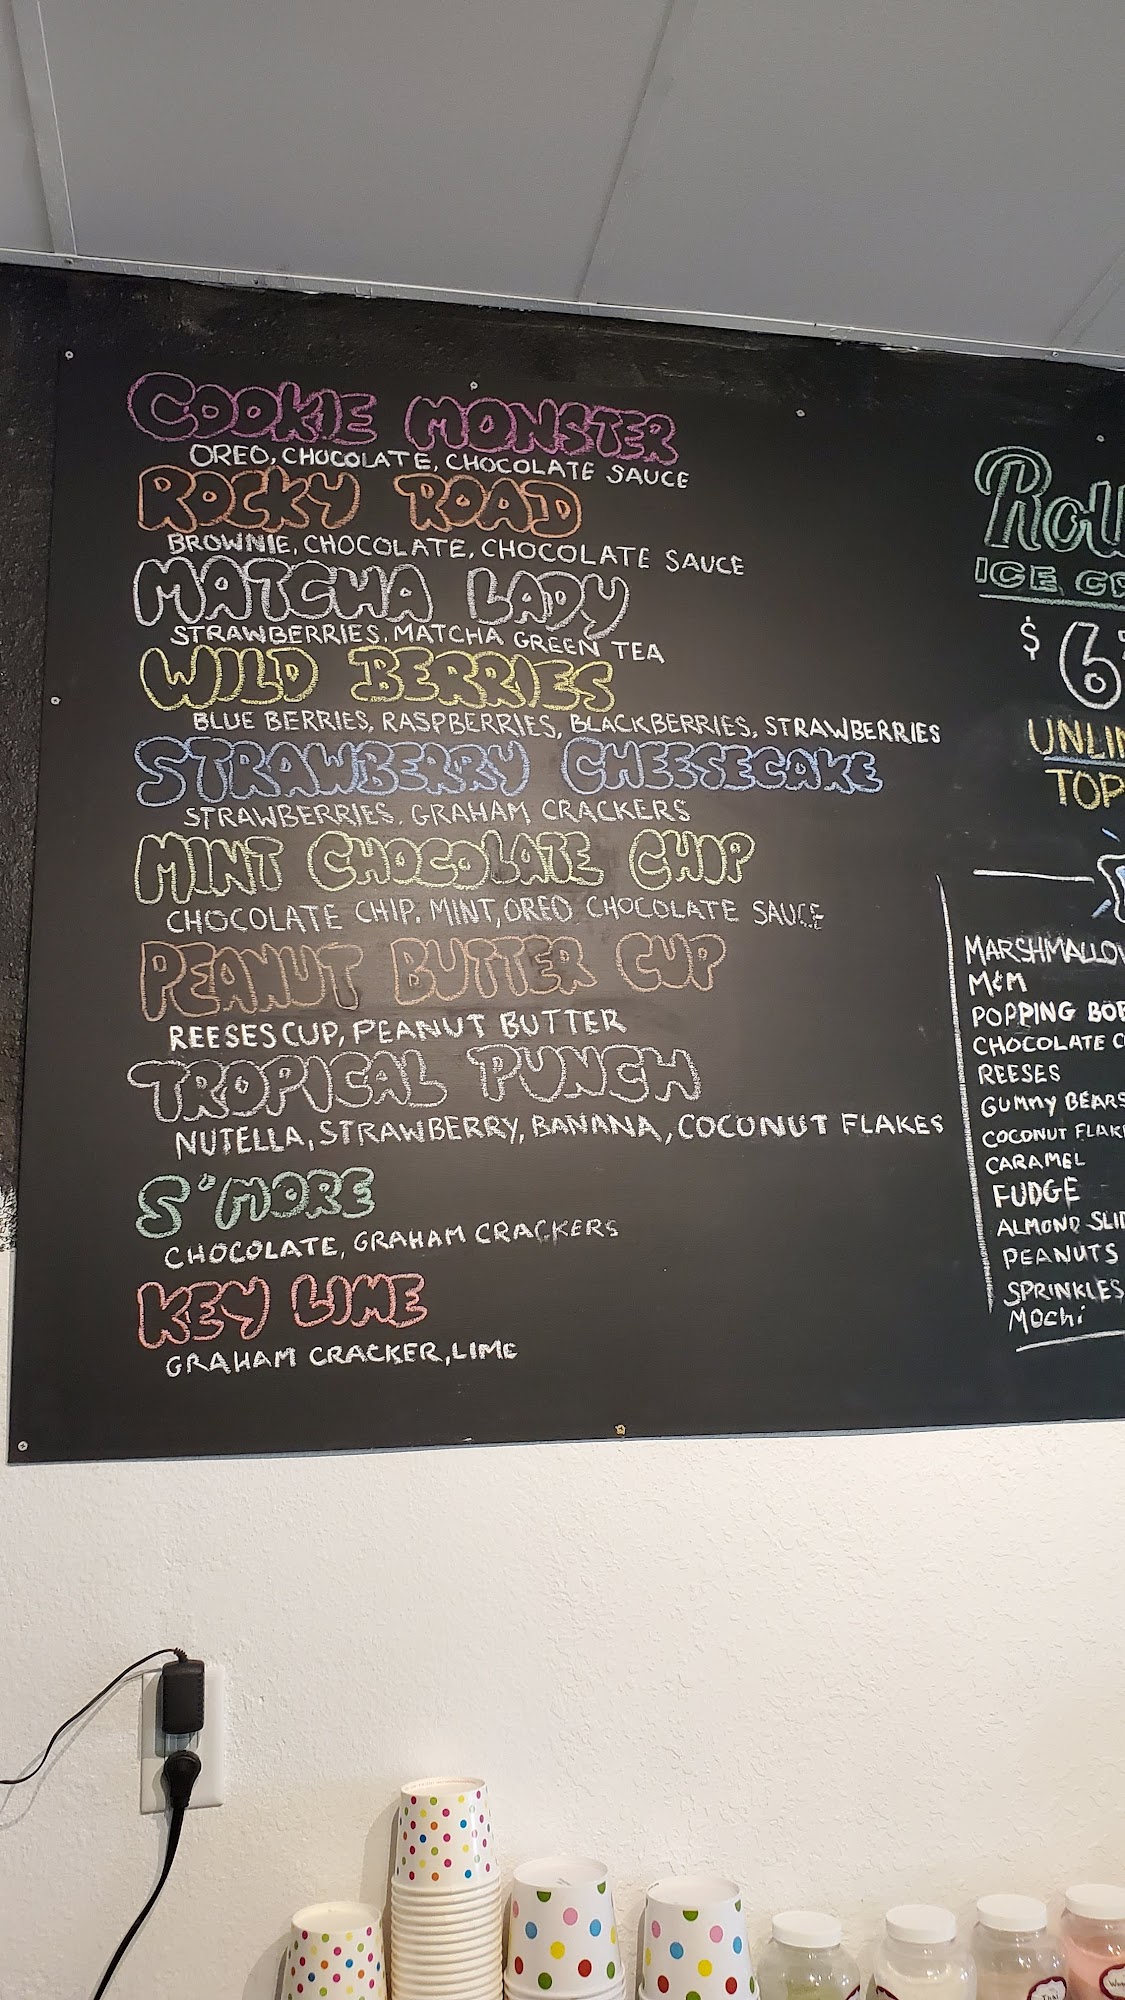 COOKIE MONSTER
OREO, CHOCOLATE, CHOCOLATE SAUCE
ROCKY ROAD
BROWNIE, CHOCOLATE, CHOCOLATE SAUCE
MATCHA LADY
STRAWBERRIES, MATCHA GREEN TEA
WILD BERRIES
BLUE BERRIES, RASPBERRIES, BLACKBERRIES, STRAWBERRIES
STRAWBERRY CHEESECAKE
STRAWBERRIES, GRAHAM CRACKERS
MINT CHOCOLATE CHIP
CHOCOLATE CHIP, MINT, OREO CHOCOLATE SAUCE
PEANUT BUTTER CUP
REESES CUP, PEANUT BUTTER
TROPICAL PUNCH
NUTELLA, STRAWBERRY, BANANA, COCONUT FLAKES
S'MORE
CHOCOLATE, GRAHAM CRACKERS
KEY LIME
GRAHAM CRACKER, LIME
ICE
$6
MARSHMALLOW
M&M
POPPING
CHOCOLATE
REESES
GUMMY BEARS
COCONUT
CARAMEL
FUDGE
ALMOND
PEANUTS
SPRINKLES
MOCHI